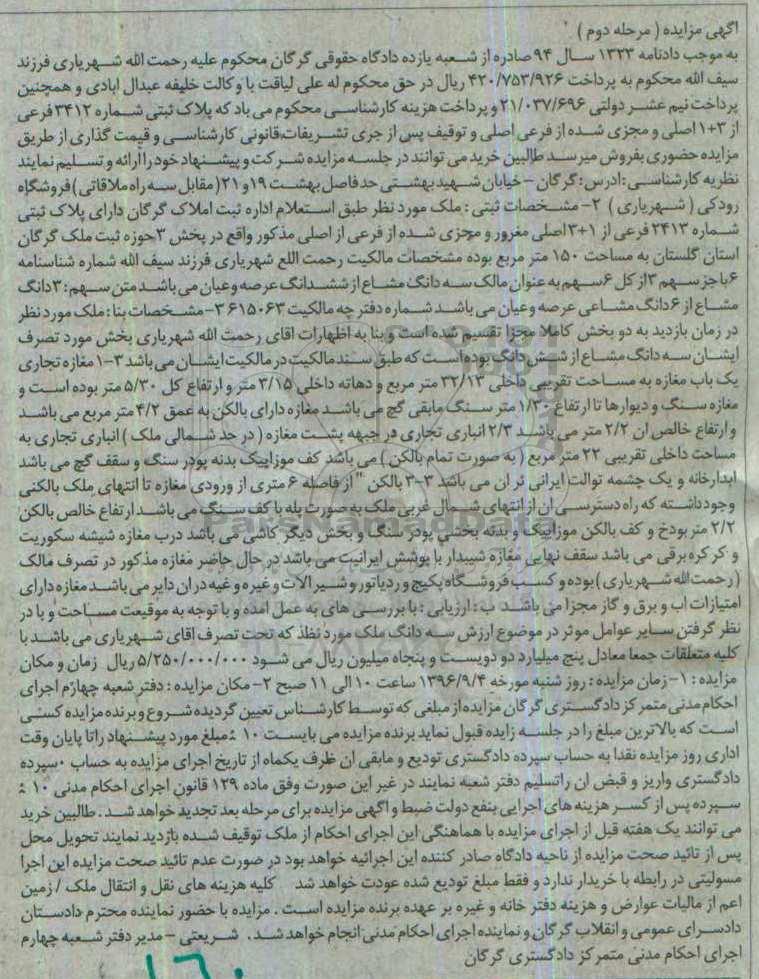 آگهی مزایده ( مرحله دوم )
به موجب دادنامه ۱۳۲۳ سال ۹۴ صادره از شعبه یازده دادگاه حقوقی گرگان محکوم علیه رحمت الله شهریاری فرزند
سیف الله محکوم به پرداخت ۴۲۰/۷۵۳/۹۲۶ ریال در حق محکوم له علی لیاقت با وکالت خلیفه عبدال ابادی و همچنین
پرداخت نیم عشر دولتی ۲۱/۰۳۷/۶۹۶ و پرداخت هزینه کارشناسی محکوم می باد که پلاک ثبتی شماره ۳۴۱۲ فرعی
از ۳+۱ اصلی و مجزی شده از فرعی اصلی و توقیف پس از جری تشریفات قانونی کارشناسی و قیمت گذاری از طریق
مزایده حضوری بفروش میرسد طالبین خرید می توانند در جلسه مزایده شرکت و پیشنهاد خود را ارائه و تسلیم نمایند
نظریه کارشناسی : ادرس : گرگان – خیابان شهید بهشتی حد فاصل بهشت ۱۹ و ۲۱ ( مقابل سه راه ملاقاتی ) فروشگاه
رودکی ( شهریاری ) ۲- مشخصات ثبتی : ملک مورد نظر طبق استعلام اداره ثبت املاک گرگان دارای پلاک ثبتی
شماره ۲۴۱۳ فرعی از ۱+۳ اصلی مفروز و مجزی شده از فرعی از اصلی مذکور واقع در بخش ۳ حوزه ثبت ملک گرگان
استان گلستان به مساحت ۱۵۰ متر مربع بوده مشخصات مالکیت رحمت اللع شهریاری فرزند سیف الله شماره شناسنامه
۶ با جز سهم ۳ از کل ۶ سهم به عنوان مالک سه دانگ مشاع از ششدانگ عرصه وعیان می باشد متن سهم : ۳ دانگ
مشاع از ۶ دانگ مشاعی عرصه وعیان می باشد شماره دفتر چه مالکیت ۶۱۵۰۶۳ ۳- مشخصات بنا : ملک مورد نظر
در زمان بازدید به دو بخش کاملا مجزا تقسیم شده است و بنا به اظهارات اقای رحمت الله شهریاری بخش مورد تصرف
ایشان سه دانگ مشاع از شش دانگ بوده است که طبق سند مالکیت در مالکیت ایشان می باشد ۳-۱ مغازه تجاری
یک باب مغازه به مساحت تقریبی داخلی ۳۲/۱۳ متر مربع و دهانه داخلی ۳/۱۵ متر و ارتفاع کل ۵/۳۰ متر بوده است و
مغازه سنگ و دیوارها تا ارتفاع ۱/۳۰ متر سنگ مابقی گچ می باشد مغازه دارای بالکن به عمق ۴/۲ متر مربع می باشد
و ارتفاع خالص ان ۲/۲ متر می باشد ۲/۳ انباری تجاری در جبهه پشت مغازه ( در حد شمالی ملک ) انباری تجاری به
مساحت داخلی تقریبی ۲۲ متر مربع ( به صورت تمام بالکن ) می باشد کف موزاییک بدنه پودر سنگ و سقف گچ می باشد
ابدارخانه و یک چشمه توالت ایرانی در ان می باشد ۳-۳ بالکن " از فاصله ۶ متری از ورودی مغازه تا انتهای ملک بالکنی
وجود داشته که راه دسترسی ان از انتهای شمال غربی ملک به صورت پله با کف سنگ می باشد ارتفاع خالص بالکن
۲/۲ متر بودخ و کف بالکن موزاییک و بدنه بخشی پودر سنگ و بخش دیگر کاشی می باشد درب مغازه شیشه سکوریت
و کرکره برقی می باشد سقف نهایی مغازه شیبدار با پوشش ایرانیت می باشد در حال حاضر مغازه مذکور در تصرف مالک
( رحمت الله شهریاری ) بوده و کسب فروشگاه پکیج و ردیاتور و شیر الات و غیره و غیه در ان دایر می باشد مغازه دارای
امتیازات اب و برق و گاز مجزا می باشد ب : ارزیابی : با بررسی های به عمل امده و با توجه به موقیعت مساحت و با در
نظر گرفتن سایر عوامل موثر در موضوع ارزش سه دانگ ملک مورد نظذ که تحت تصرف اقای شهریاری می باشد با
کلیه متعلقات جمعا معادل پنج میلیارد دو دویست و پنجاه میلیون ریال می شود ۵/۲۵۰/۰۰۰/۰۰۰ ریال زمان و مکان
مزایده : ۱- زمان مزایده : روز شنبه مورخه ۱۳۹۶/۹/۴ ساعت ۱۰ الی ۱۱ صبح ۲- مکان مزایده : دفتر شعبه چهارم اجرای
احکام مدنی متمرکز دادگستری گرگان مزایده از مبلغی که توسط کارشناس تعیین گردیده شروع و برنده مزایده کسی
است که بالاترین مبلغ را در جلسه زایده قبول نماید برنده مزایده می بایست ۱۰ ٪ مبلغ مورد پیشنهاد را تا پایان وقت
اداری روز مزایده نقدا به حساب سپرده دادگستری تودیع و مابقی ان ظرف یکماه از تاریخ اجرای مزایده به حساب سپرده
دادگستری واریز و قبض ان را تسلیم دفتر شعبه نمایند در غیر این صورت وفق ماده ۱۲۹ قانون اجرای احکام مدنی ۱۰ ٪
سپرده پس از کسر هزینه های اجرایی بنفع دولت ضبط و اگهی مزایده برای مرحله بعد تجدید خواهد شد . طالبین خرید
می توانند یک هفته قبل از اجرای مزایده با هماهنگی این اجرای احکام از ملک توقیف شده بازدید نمایند تحویل محل
پس از تائید صحت مزایده از ناحیه دادگاه صادر کننده این اجرائیه خواهد بود در صورت عدم تائید صحت مزایده این اجرا
مسولیتی در رابطه با خریدار ندارد و فقط مبلغ تودیع شده عودت خواهد شد کلیه هزینه های نقل و انتقال ملک / زمین
اعم از مالیات عوارض و هزینه دفتر خانه و غیره بر عهده برنده مزایده است . مزایده با حضور نماینده محترم دادستان
دادسرای عمومی و انقلاب گرگان و نماینده اجرای احکام مدنی انجام خواهد شد . شریعتی – مدیر دفتر شعبه چهارم
اجرای احکام مدنی متمرکز دادگستری گرگان
ParsNamadData
۱۶۰